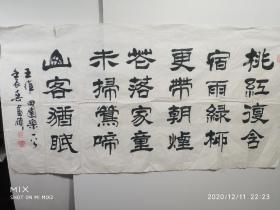 桃紅復含
宿雨緑柳
更帶朝煙
花落家童
未掃鶯啼
山客猶眠
王維田園樂
MIX 2
2020/12/11 22:23